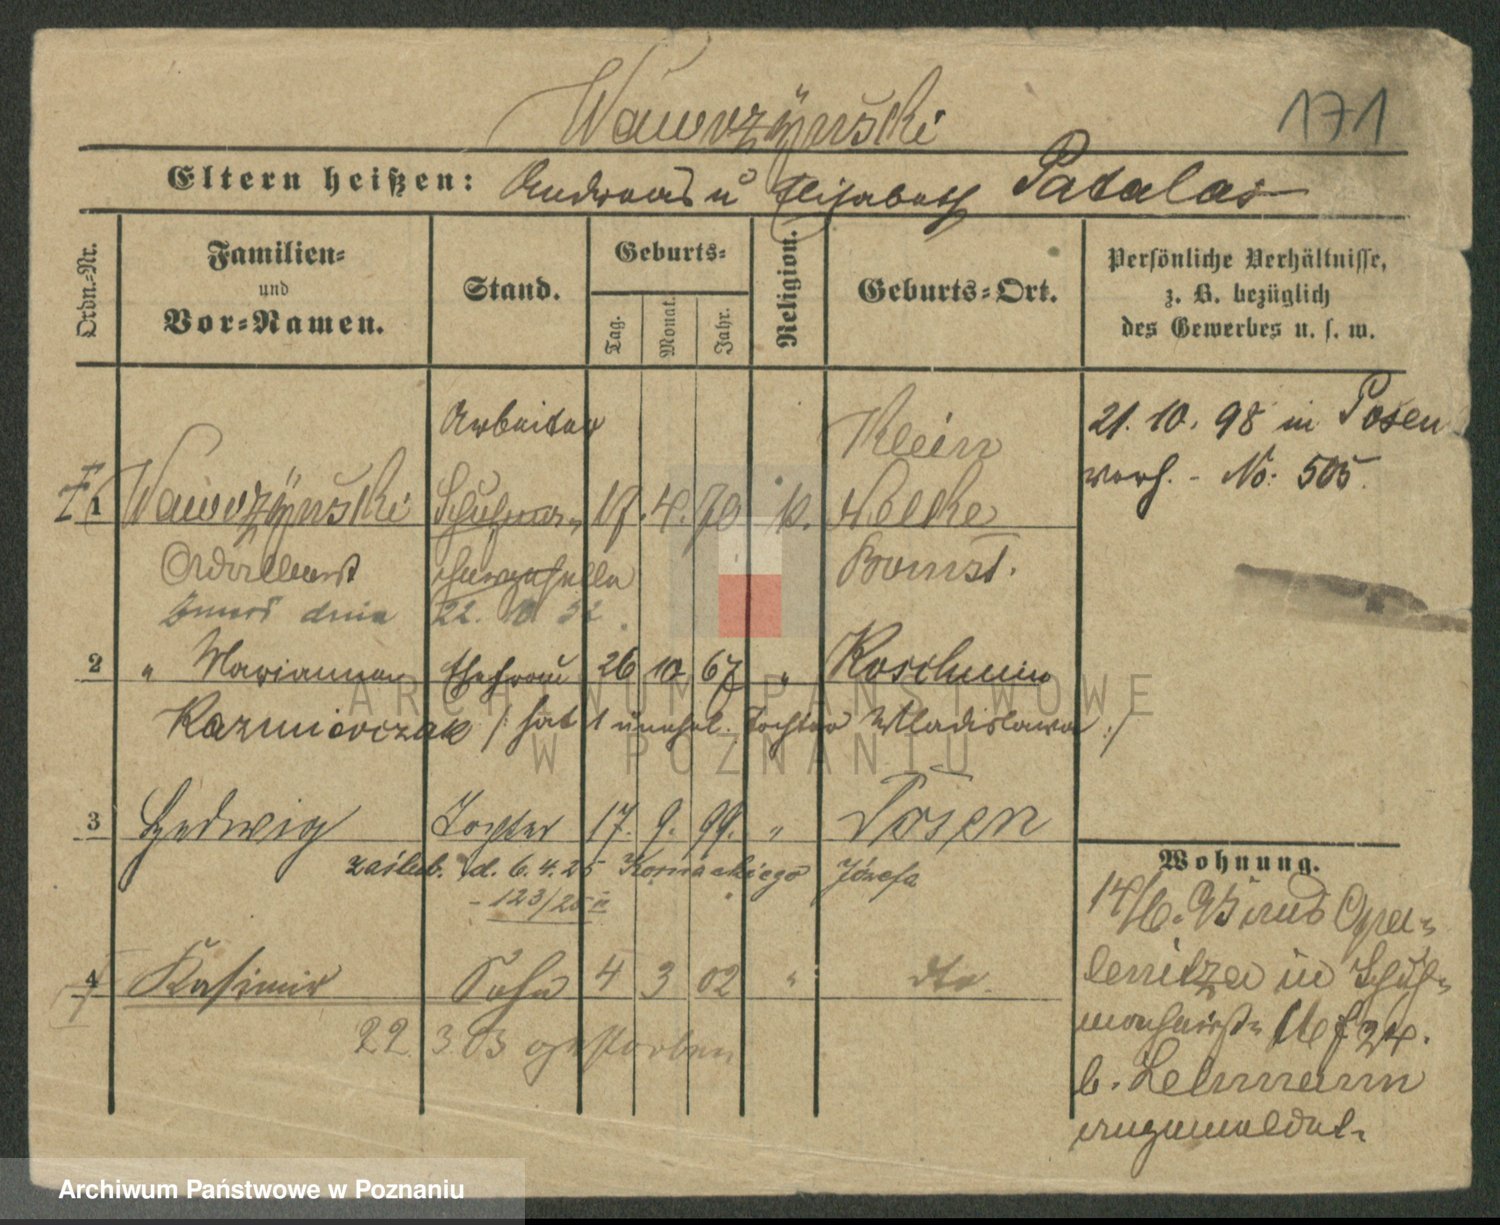 Wawrzÿnski
171
Eltern heißen: Andreas u Elisabeth Patalas
Ordn.-Nr.
Familien-
und
Vor-Namen.
Stand.
Geburts-
Tag.
Monat.
Jahr.
Religion.
Geburts-Ort.
Persönliche Verhältnisse,
z. B. bezüglich
des Gewerbes u. s. w.
Arbeiter
Klein
21. 10. 98 in Posen
verh. - No: 505.
1 Wawrzÿnski 17. 4. 70 k. Nelke
Bomst.
Zmarł dnia 22.
2 " Marianna Ehefrau 26 10 67 " Koschmin
Kazmierczak /: hat 1 unehel. Tochter Wladislawa :/
3 Hedwig Tochter 17. 9. 99. " Posen
zaślub. d. 6.4.25 Józefa
- 123/25
4 Kasimir Sohn 4 3 02 " dto.
22. 3. 03 gestorben
Wohnung.
14/6. aus Opa-
lenitza in
24.
b. Lehmann
angemeldet.
ARCHIWUM PAŃSTWOWE
W POZNANIU
Archiwum Państwowe w Poznaniu